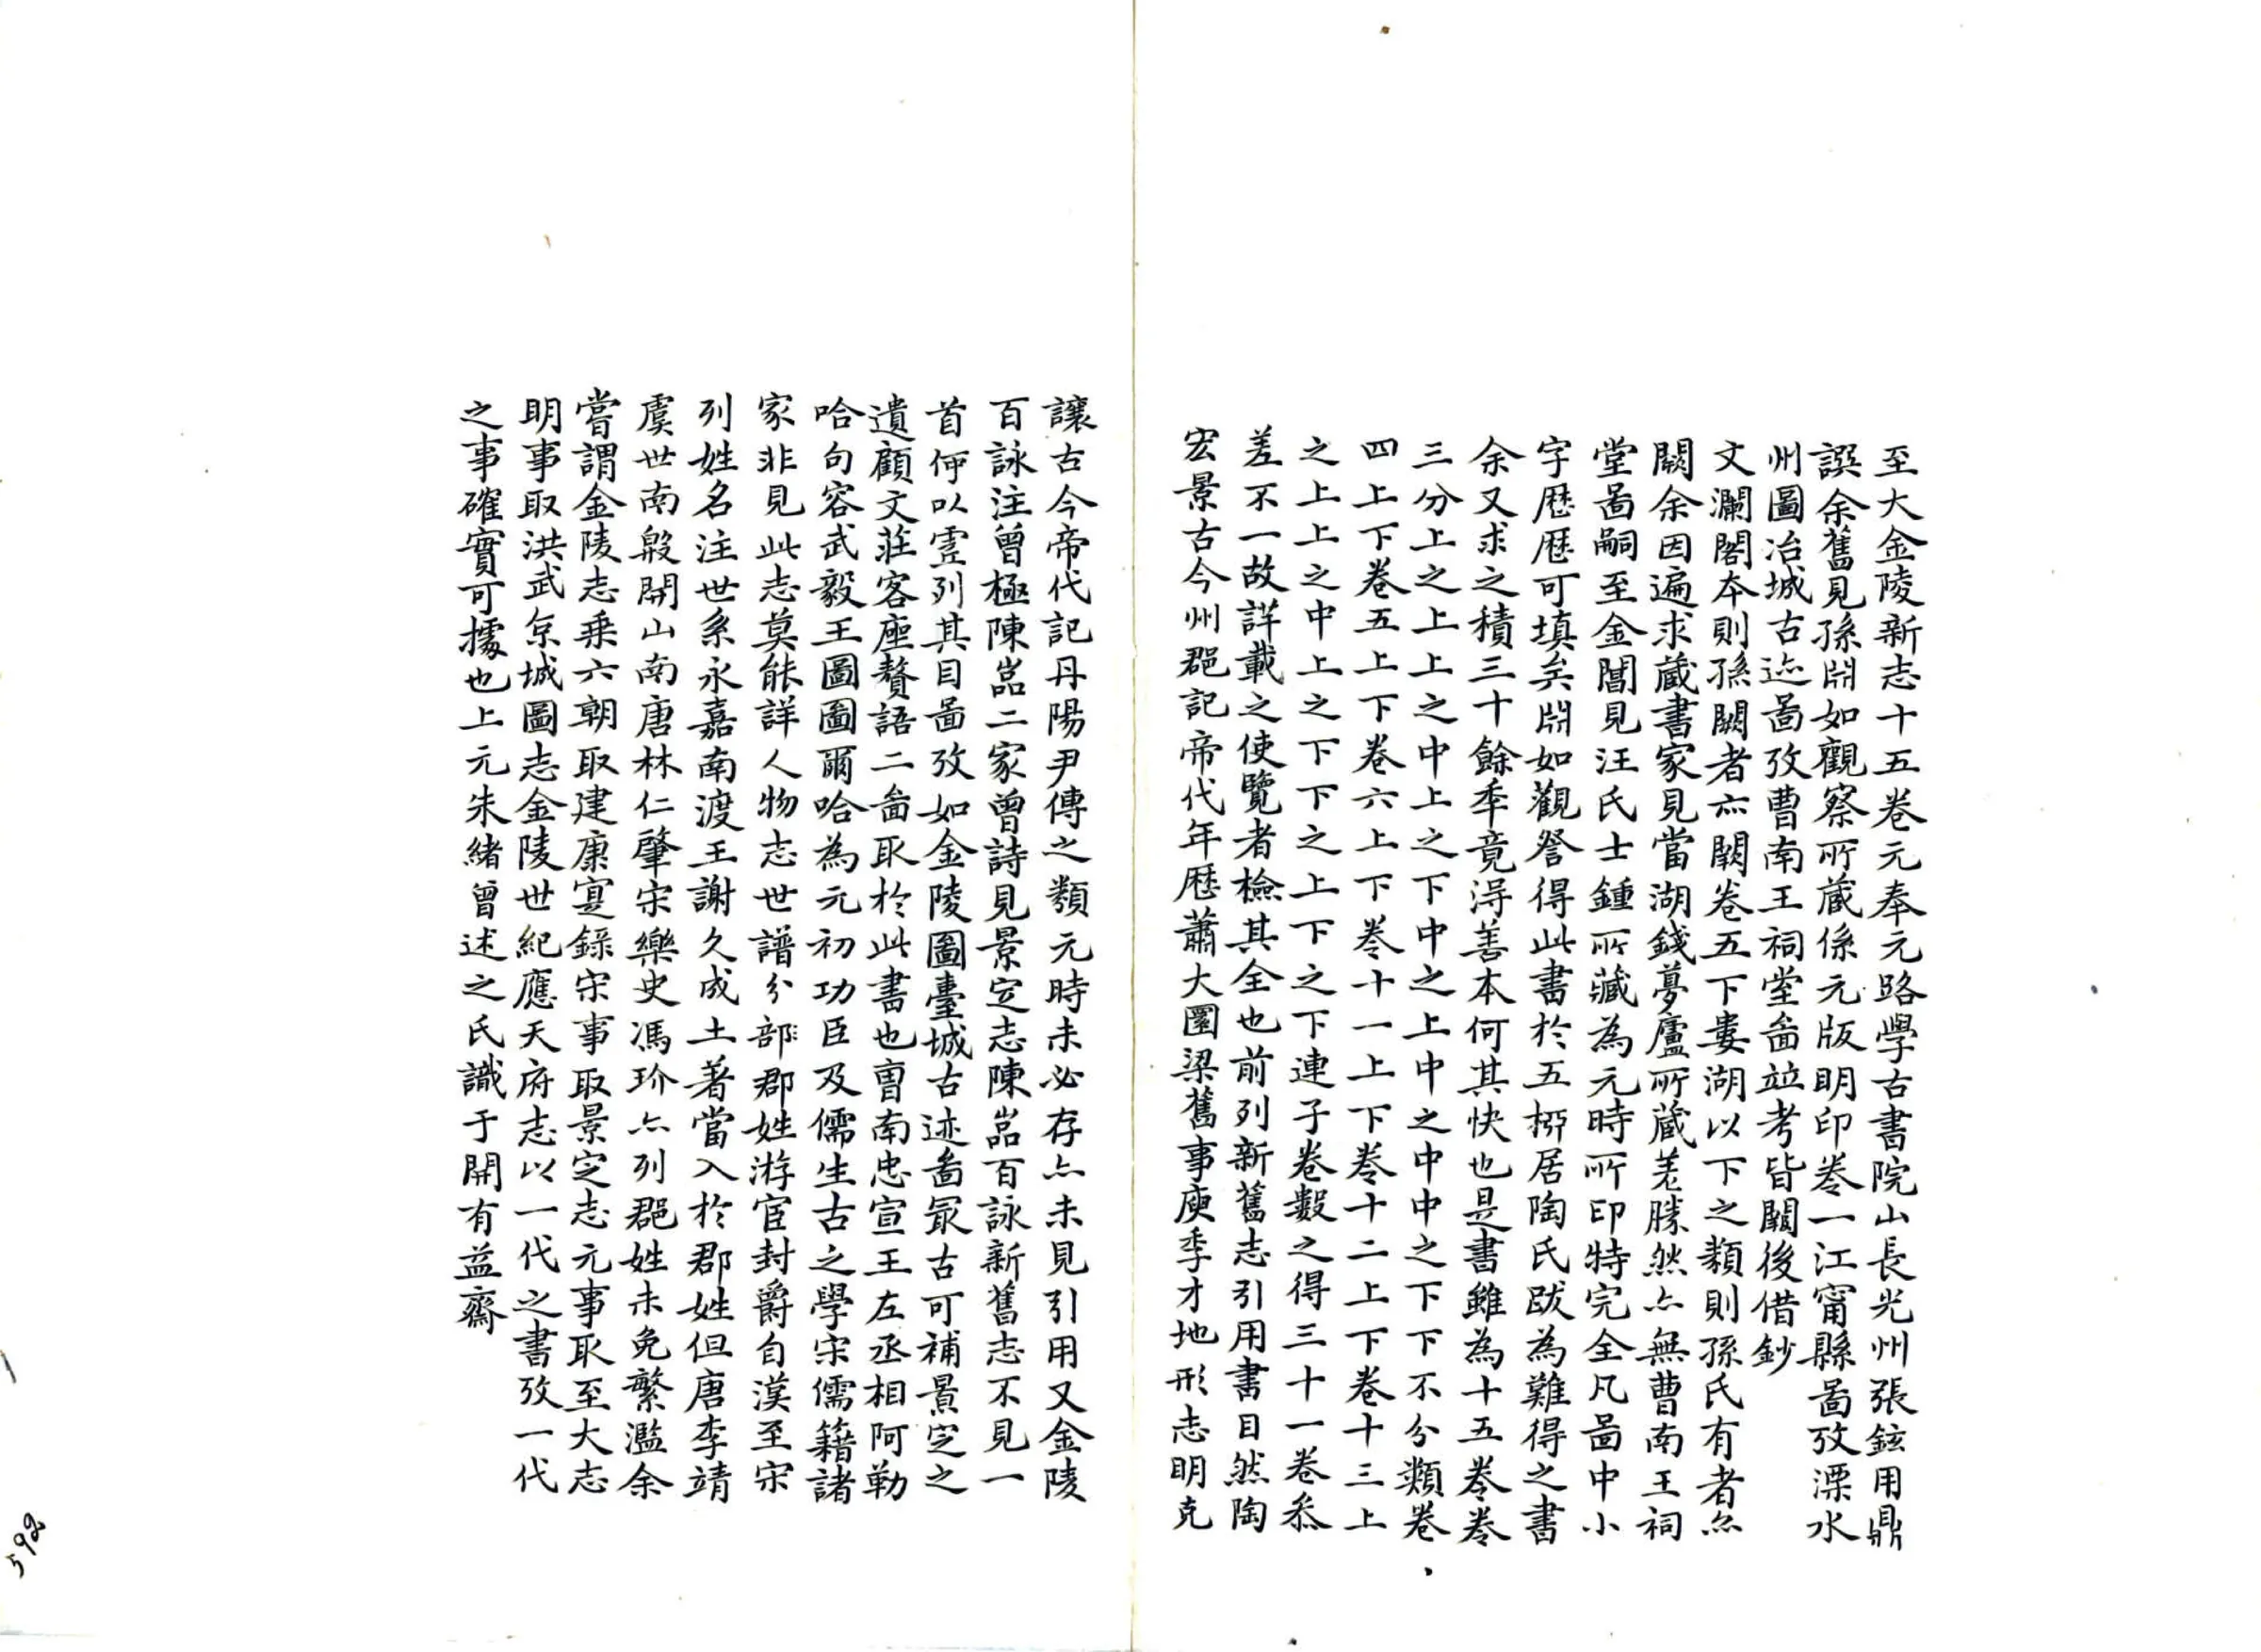 至大金陵新志十五卷元奉元路學古書院山長光州張鉉用鼎
譔余舊見孫淵如觀察所藏係元版明印卷一江甯縣啚攷溧水
州圖冶城古迹啚攷曹南王祠堂啚竝考皆闕後借鈔
文瀾閣本則孫闕者亦闕卷五下婁湖以下之類則孫氏有者亦
闕余因遍求藏書家見當湖錢夢廬所藏差勝然亦無曹南王祠
堂啚嗣至金閶見汪氏士鍾所藏為元時所印特完全凡啚中小
字歷歷可填矣淵如觀詧得此書於五桺居陶氏跋為難得之書
余又求之積三十餘秊竟淂善本何其快也是書雖為十五卷卷
三分上之上上之中上之下中之上中之中中之下下不分類卷
四上下卷五上下卷六上下卷十一上下卷十二上下卷十三上
之上上之中上之下下之上下之下連子卷數之得三十一卷叅
差不一故詳載之使覽者檢其全也前列新舊志引用書目然陶
宏景古今州郡記帝代年歷蕭大圜梁舊事庾季才地形志明克
讓古今帝代記丹陽尹傳之類元時未必存亦未見引用又金陵
百詠注曾極陳嵓二家曾詩見景定志陳嵓百詠新舊志不見一
首何以虛列其目啚攷如金陵圖臺城古迹啚冣古可補景定之
遺顧文莊客座贅語二啚取於此書也曹南忠宣王左丞相阿勒
哈句容武毅王圖圖爾哈為元初功臣及儒生古之學宋儒籍諸
家非見此志莫能詳人物志世譜分部郡姓游宦封爵自漢至宋
列姓名注世系永嘉南渡王謝久成土著當入於郡姓但唐李靖
虞世南殷開山南唐林仁肇宋樂史馮玠亦列郡姓未免繁濫余
嘗謂金陵志乘六朝取建康寔錄宋事取景定志元事取至大志
明事取洪武京城圖志金陵世紀應天府志以一代之書攷一代
之事確實可據也上元朱緒曾述之氏識于開有益齋
592